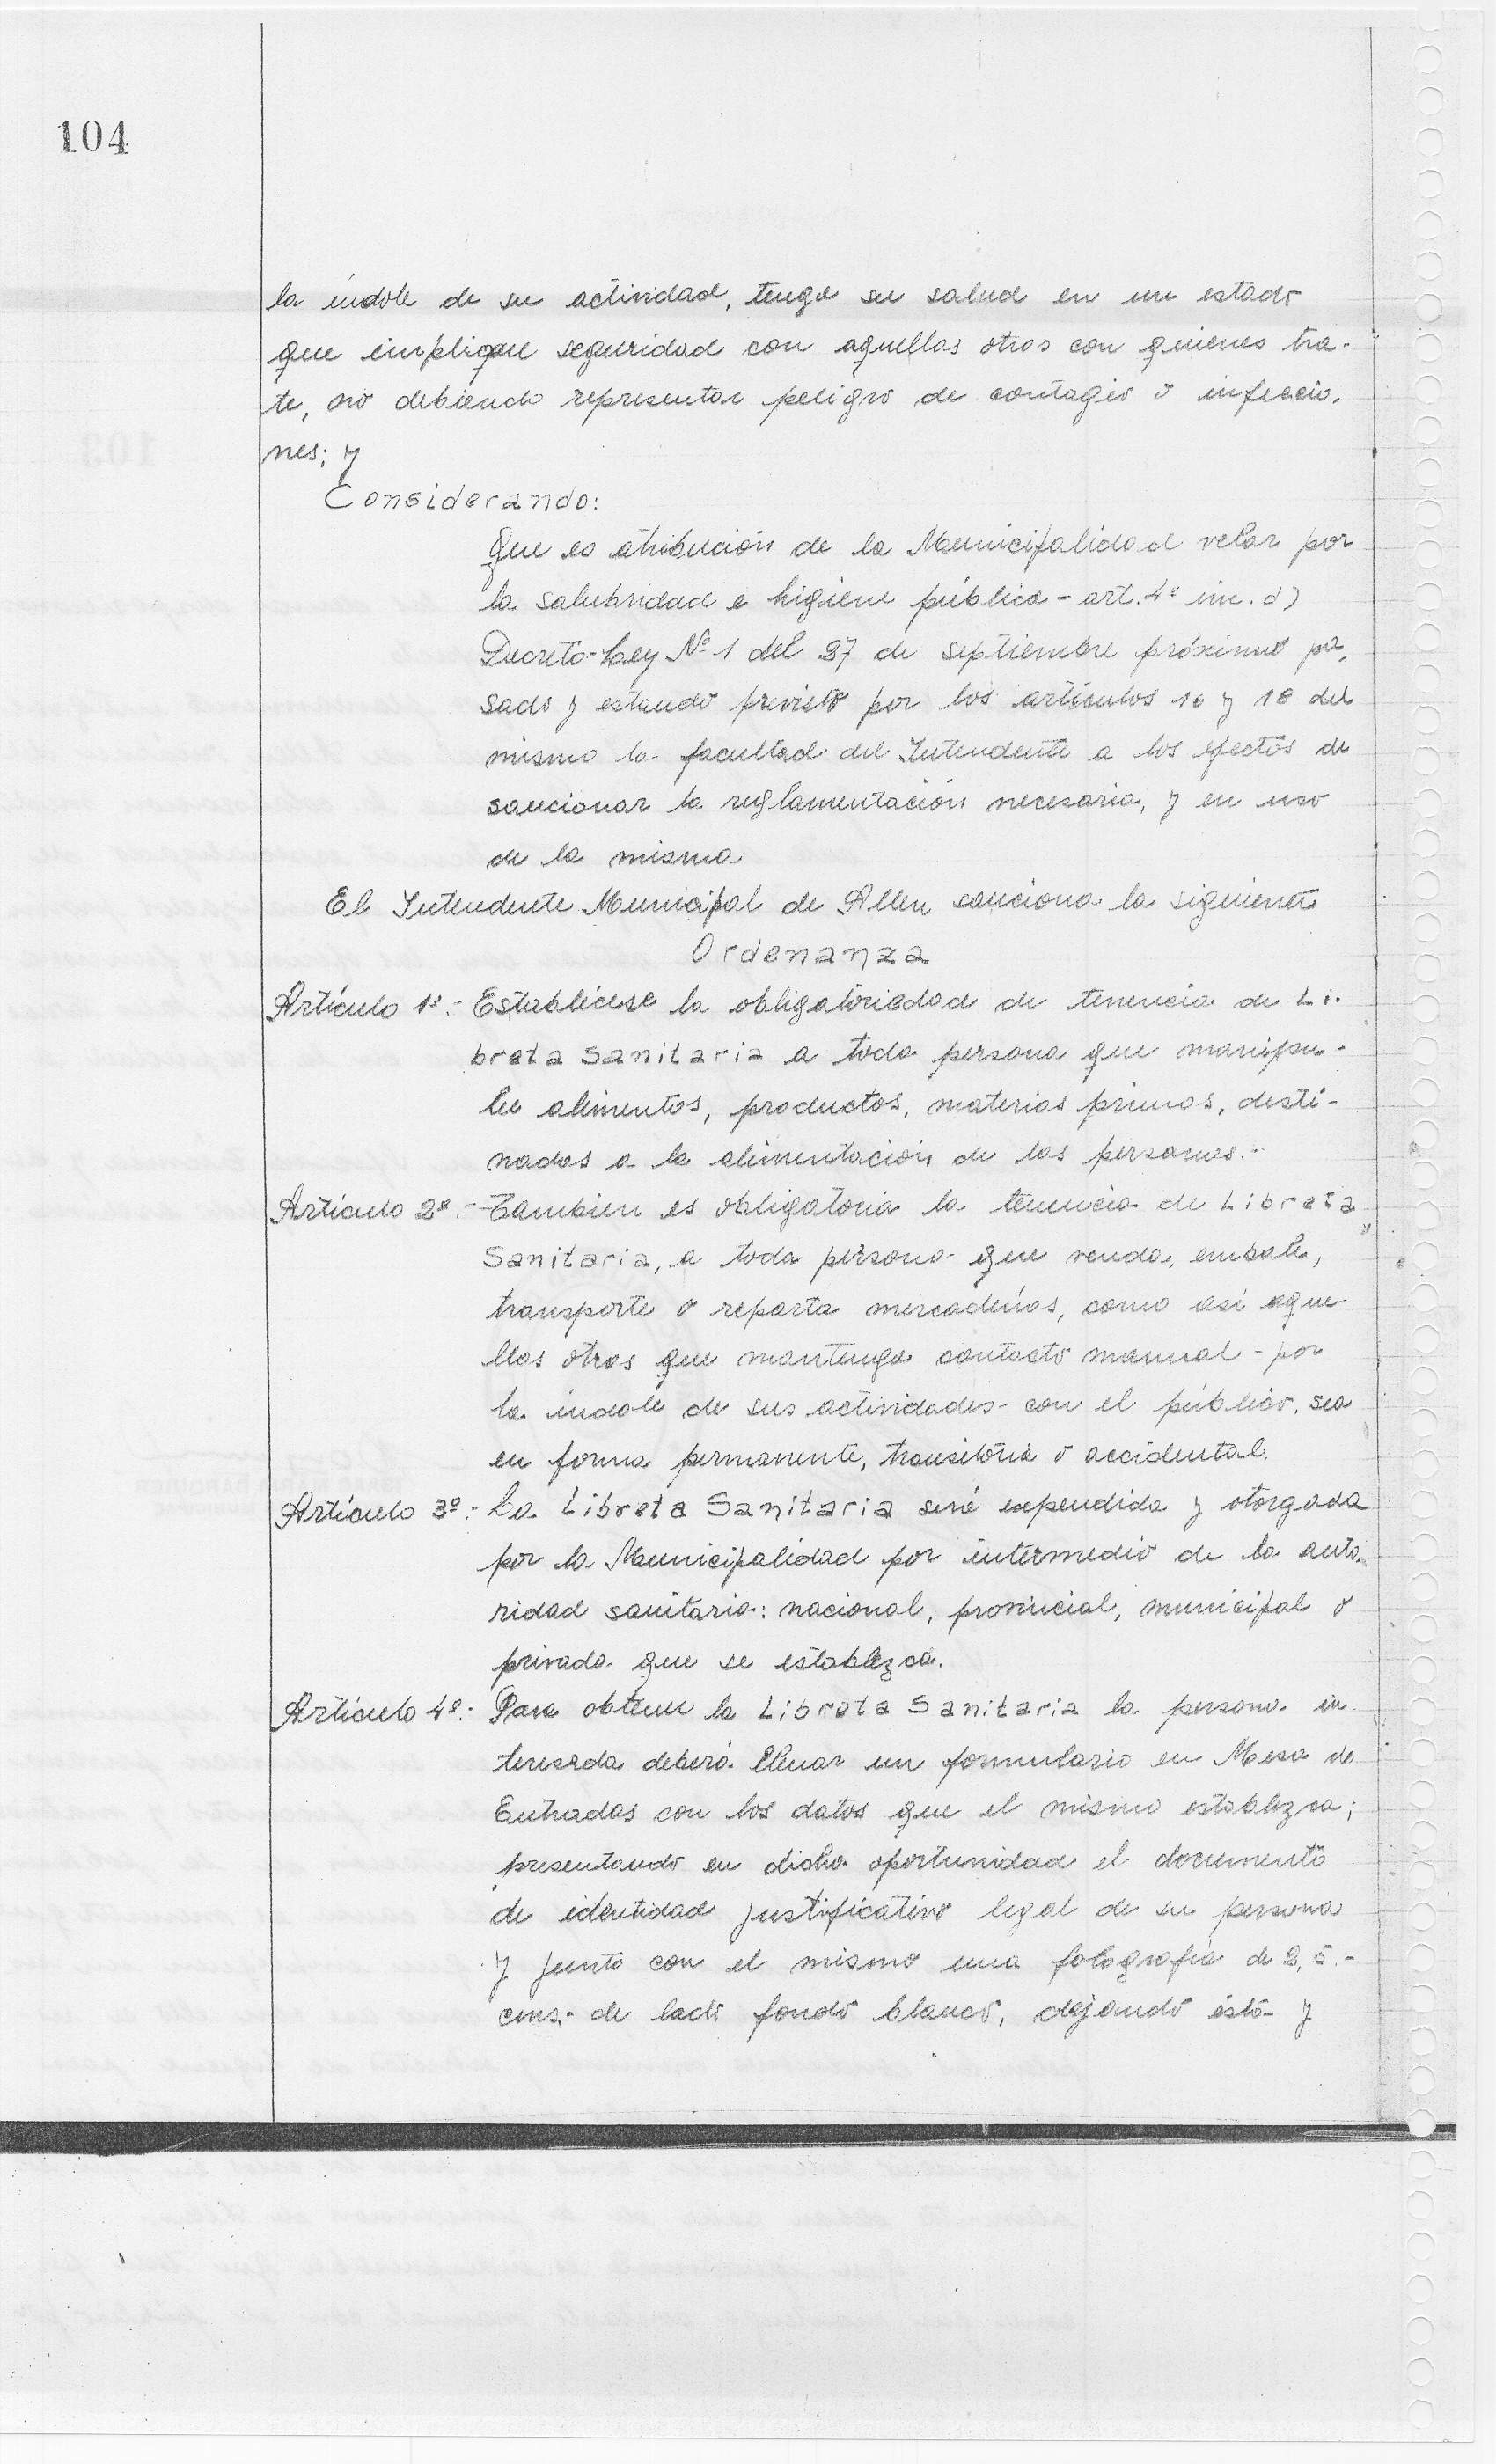 104
la índole de su actividad, tenga su salud en un estado
que implique seguridad con aquellas otras con quienes tra-
te, no debiendo representar peligro de contagio o infeccio-
nes; y
Considerando:
Que es atribución de la Municipalidad velar por
la salubridad e higiene pública - art. 4º inc. d)
Decreto-Ley Nº 1 del 27 de septiembre próximo pa-
sado y estando previsto por los artículos 16 y 18 del
mismo la facultad del Intendente a los efectos de
sancionar la reglamentación necesaria, y en uso
de la misma
El Intendente Municipal de Allen sanciona la siguiente
Ordenanza
Artículo 1º.- Establécese la obligatoriedad de tenencia de Li-
breta Sanitaria a toda persona que manipu-
le alimentos, productos, materias primas, desti-
nadas a la alimentación de las personas.-
Artículo 2º.- Tambien es obligatoria la tenencia de Libreta
Sanitaria, a toda persona que venda, embale,
transporte o reparta mercaderías, como así aque
llas otras que mantenga contacto manual - por
la índole de sus actividades - con el público, sea
en forma permanente, transitoria o accidental.
Artículo 3º.- La Libreta Sanitaria será expendida y otorgada
por la Municipalidad por intermedio de la auto-
ridad sanitaria: nacional, provincial, municipal o
privada que se establezca.
Artículo 4º.- Para obtener la Libreta Sanitaria la persona in
teresada deberá llenar un formulario en Mesa de
Entradas con los datos que el mismo establezca;
presentando en dicha oportunidad el documento
de identidad justificativo legal de su persona
y junto con el mismo una fotografía de 2,5.-
cms.- de lado fondo blanco, dejando ésta- y